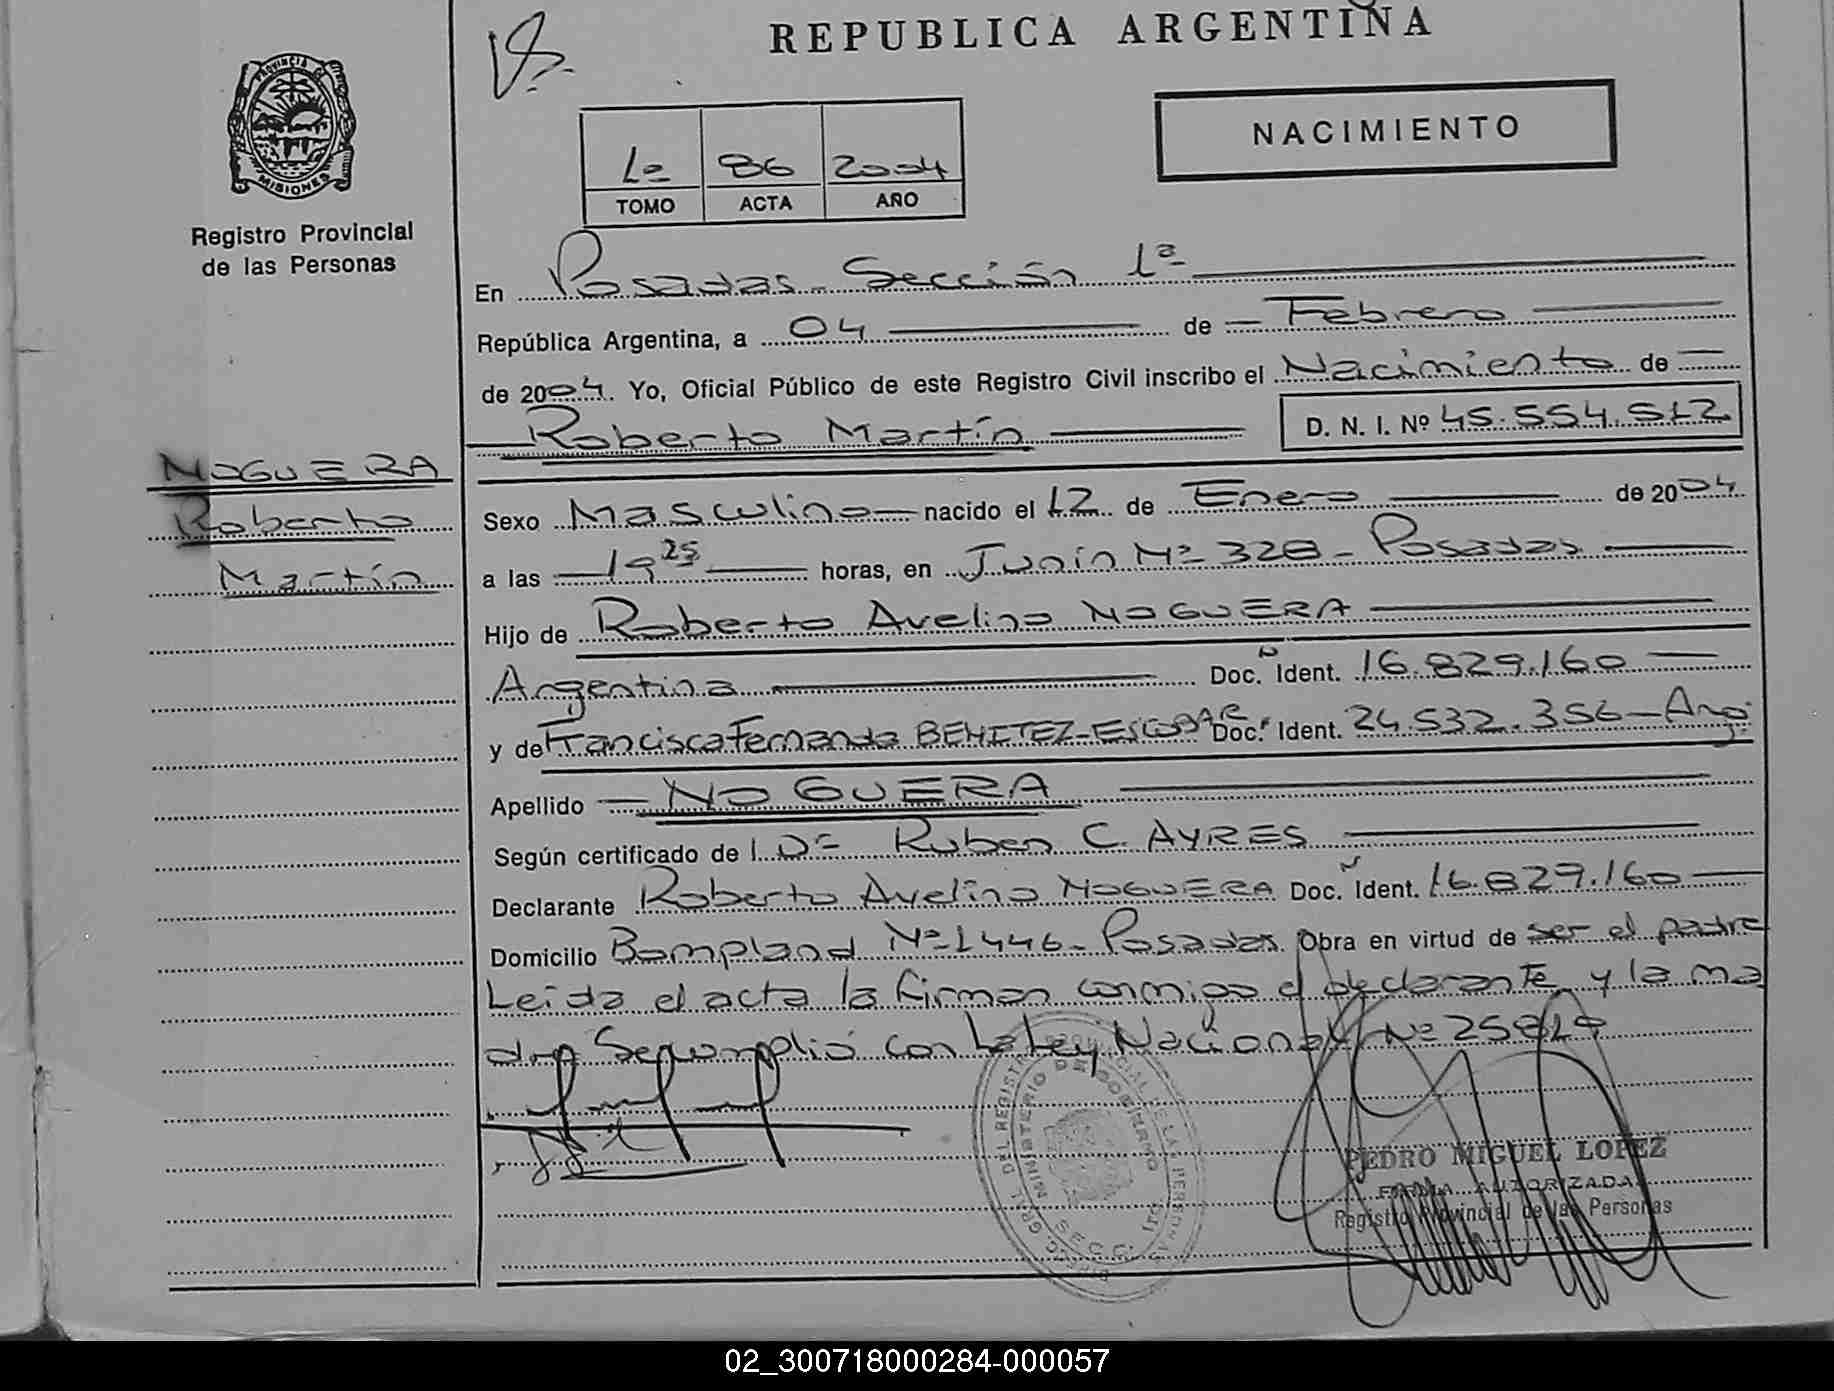 REPUBLICA ARGENTINA
PROVINCIA DE
MISIONES
Registro Provincial
de las Personas
1º 86 2004
TOMO ACTA AÑO
NACIMIENTO
En Posadas Sección 1ª
República Argentina, a 04 de Febrero
de 2004. Yo, Oficial Público de este Registro Civil inscribo el Nacimiento de
Roberto Martín D. N. I. Nº 45.554.512
NOGUERA
Roberto
Martín
Sexo Masculino nacido el 12 de Enero de 2004
a las 19 25 horas, en Junín Nº 328 - Posadas
Hijo de Roberto Avelino NOGUERA
Argentina Doc. Ident. 16.829.160
y de Francisca Fernanda BENITEZ-ESCOBAR Doc. Ident. 24.532.356 - Arg.
Apellido NOGUERA
Según certificado de Dr Ruben C. AYRES
Declarante Roberto Avelino NOGUERA Doc. Ident. 16.829.160
Domicilio Bompland Nº 1446 - Posadas. Obra en virtud de ser el padre
Leida el acta la firman conmigo el declarante y la ma
dre Se cumplió con la Ley Nacional Nº 25819
MINISTERIO DE GOBIERNO
SECC. 1ra
PEDRO MIGUEL LOPEZ
FIRMA AUTORIZADA
Registro Provincial de las Personas
02_300718000284-000057